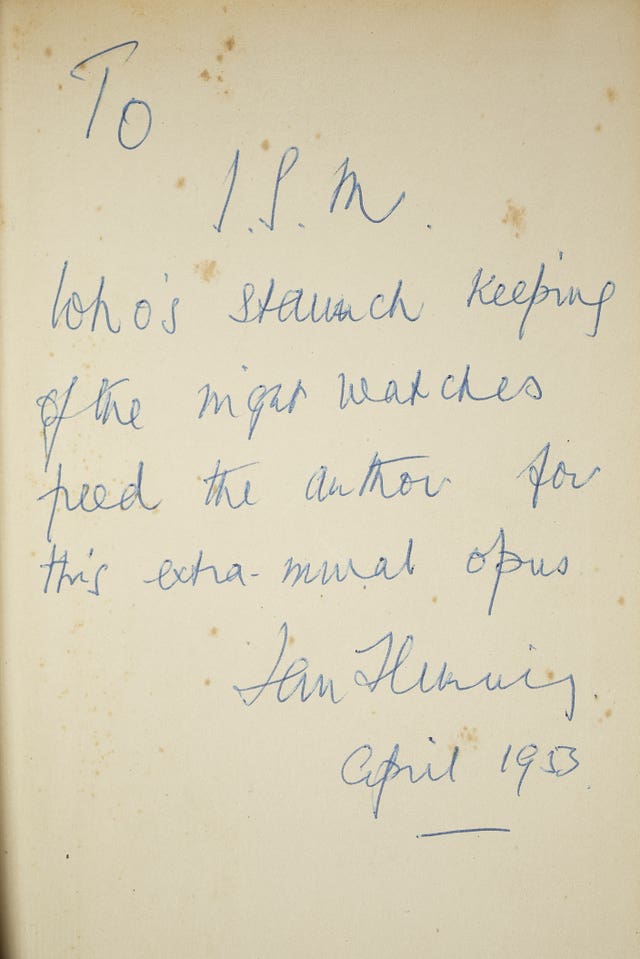 To
I.S.M.
Who's staunch keeping
of the night watches
freed the author for
this extra-mural opus
Ian Fleming.
April 1953.